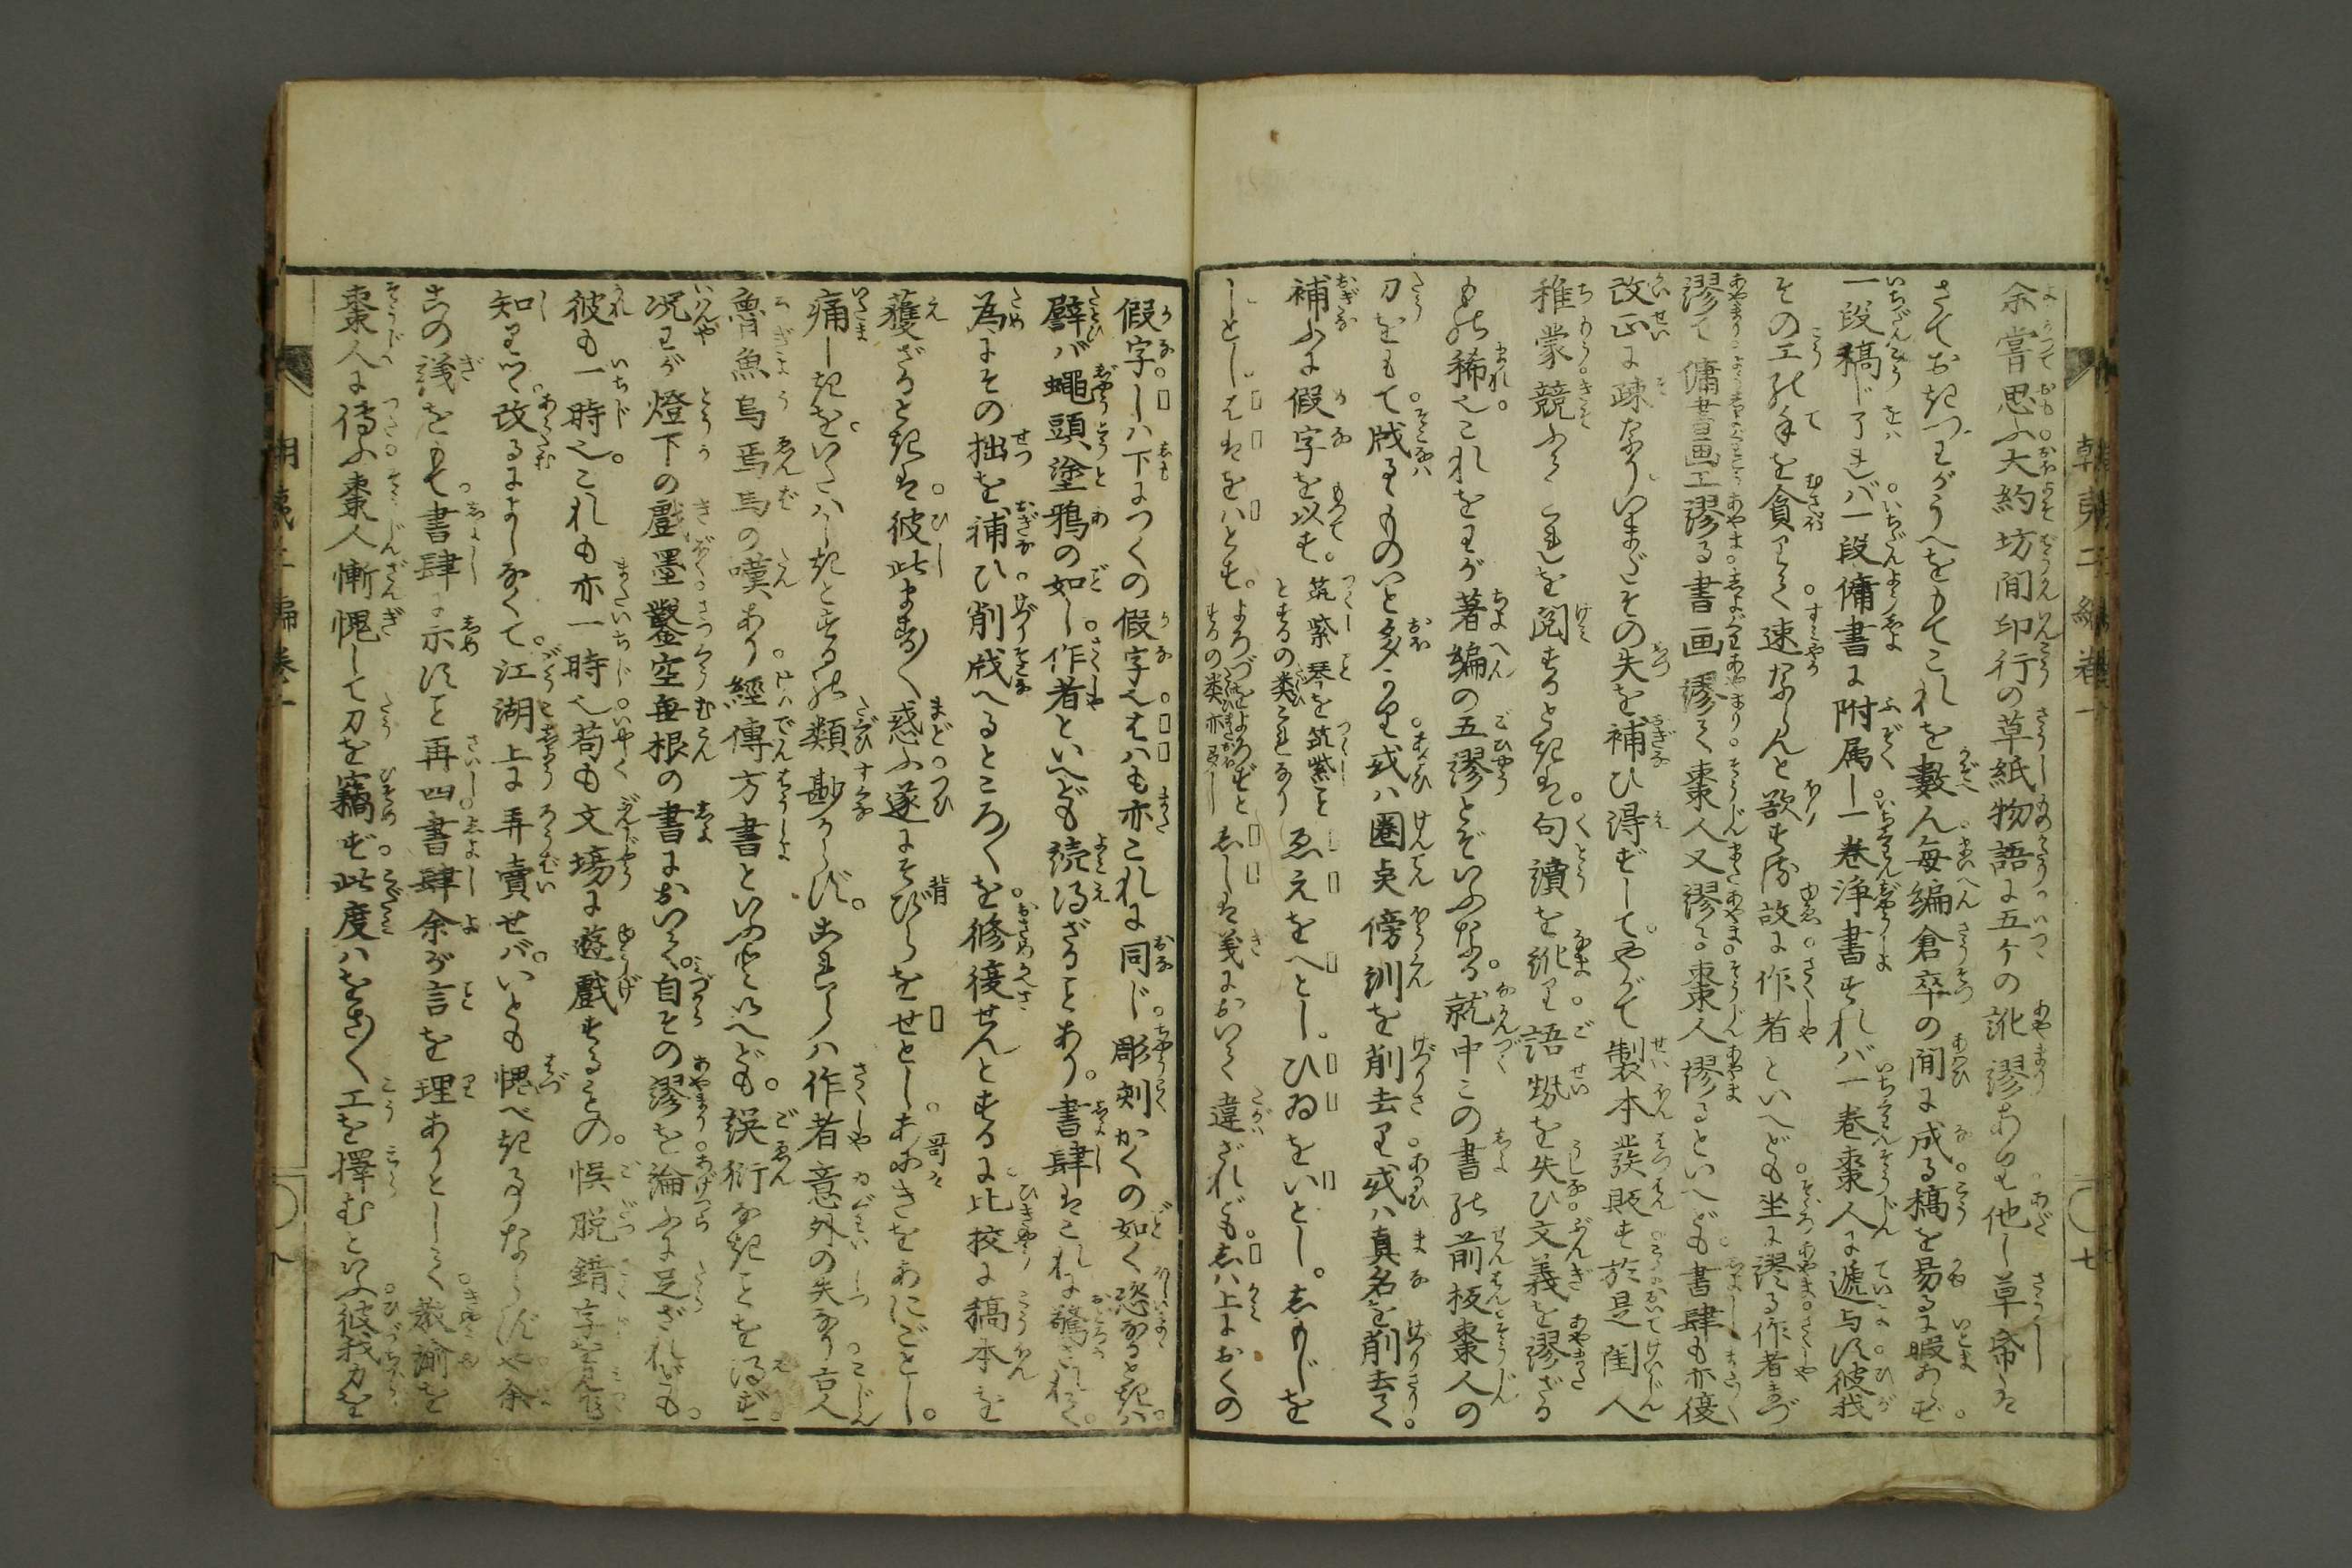 余嘗思ふ大約坊間印行の草紙物語に五ケの訛謬あり他し草帋は
さておきつわがうへをもてこれを数ん毎編倉卒の間に成る稿を易るに暇あらず
一段稿じ了れバ一段傭書に附属し一巻浄書すれバ一巻棗人に遞与す彼我
その工の手を貪りて速ならんと欲す故に作者といへども坐に謬る作者まづ
謬て傭書画工謬る書画謬て棗人又謬る棗人謬るといへども書肆も亦復
改正に疎なりいまだその失を補ひ得ずしてやがて製本発販す於是閨人
稚蒙競ふてこれを閲するときは句讀を訛り語勢を失ひ文義を謬ざる
もの稀也これをわが著編の五謬とぞいふなる就中この書の前板棗人の
刀をもて戕るもの いと多かり或ハ圏点傍訓を削去り或ハ真名を削去て
補ふに假字を以す筑紫琴を筑紫こ
とするの類これなりゑえをへとしひゐをいとしあもじを
しとしはわをハとすよろづをよろずと
するの類亦多し
おしは義において違ざれどもしハ上におくの
假字しハ下につくの假字也はハも亦これに同じ彫刻かくの如く恣なるときハ
譬バ蠅頭塗鴉の如し作者といへども続得ざることあり書肆はこれに驚されて
為にその拙を補ひ削戕へるところ〳〵を修復せんとするに比挍に稿本を
獲ざるときは彼此ます〳〵惑ふ遂にそびらをせとしあふきをあにごとし
痛しきをいたハしきとするの類尠からずこれらハ作者意外の失なり古人
魯魚烏焉馬の嘆あり經傳方書といふといへども誤衍なきことを得ず
况わが燈下の戲墨鑿空無根の書において自その謬を論ふに足ざれども
彼も一時也これも亦一時也苟も文場に遊戲するもの悞脱錯亭
知りつゝ改るによしなくて江湖上に弄賣せバいとも愧べき事ならずや余
この議をもて書肆に示すこと再四書肆余が言を理ありとして教諭を
棗人に傳ふ棗人慚愧して刀を竊ず此度ハをさ〳〵工を擇むといふ彼我力を